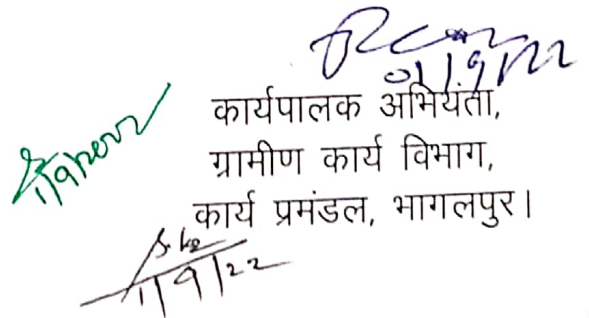 01/9/22
कार्यपालक अभियंता,
ग्रामीण कार्य विभाग,
1/9/2022
कार्य प्रमंडल, भागलपुर।
1/9/22